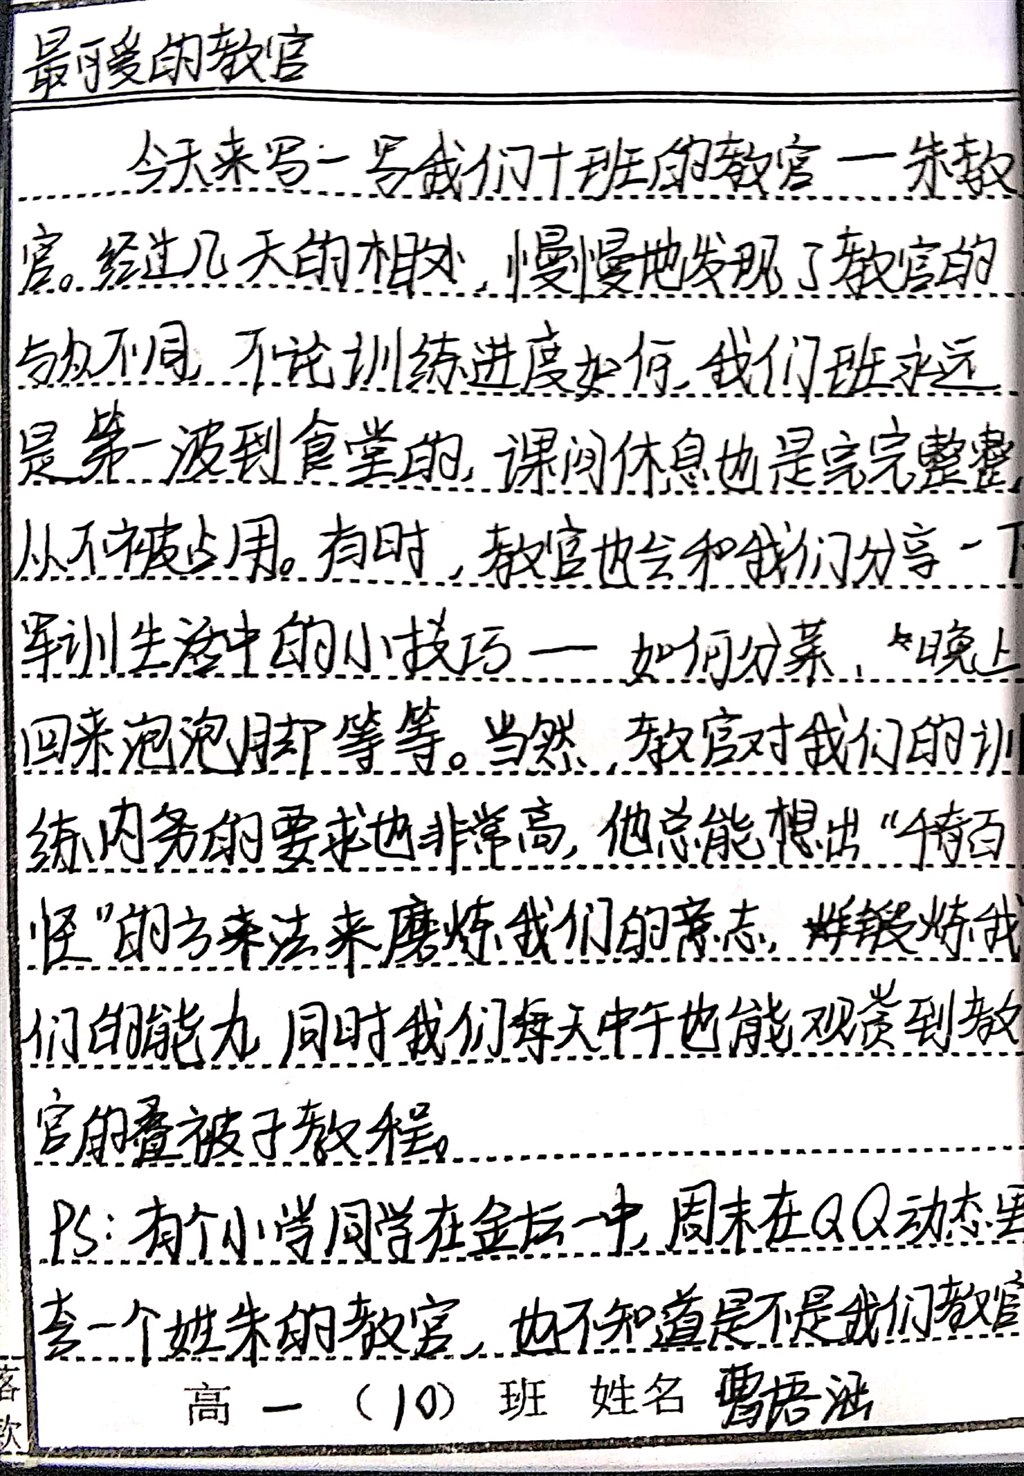 最可爱的教官
今天来写一写我们十班的教官——朱教
官。经过几天的相处,慢慢地发现了教官的
与众不同,不论训练进度如何,我们班永远
是第一波到食堂的,课间休息也是完完整整,
从不被占用。有时,教官也会和我们分享一下
军训生活中的小技巧——如何分菜,晚上
回来泡泡脚等等。当然,教官对我们的训
练内务的要求也非常高,他总能想出“千奇百
怪”的方法来磨炼我们的意志,锻炼我
们的能力,同时我们每天中午也能观赏到教
官的叠被子教程。
PS:有个小学同学在金坛一中,周末在QQ动态里
夸一个姓朱的教官,也不知道是不是我们教官
高一(10)班 姓名 曹语涵
落款